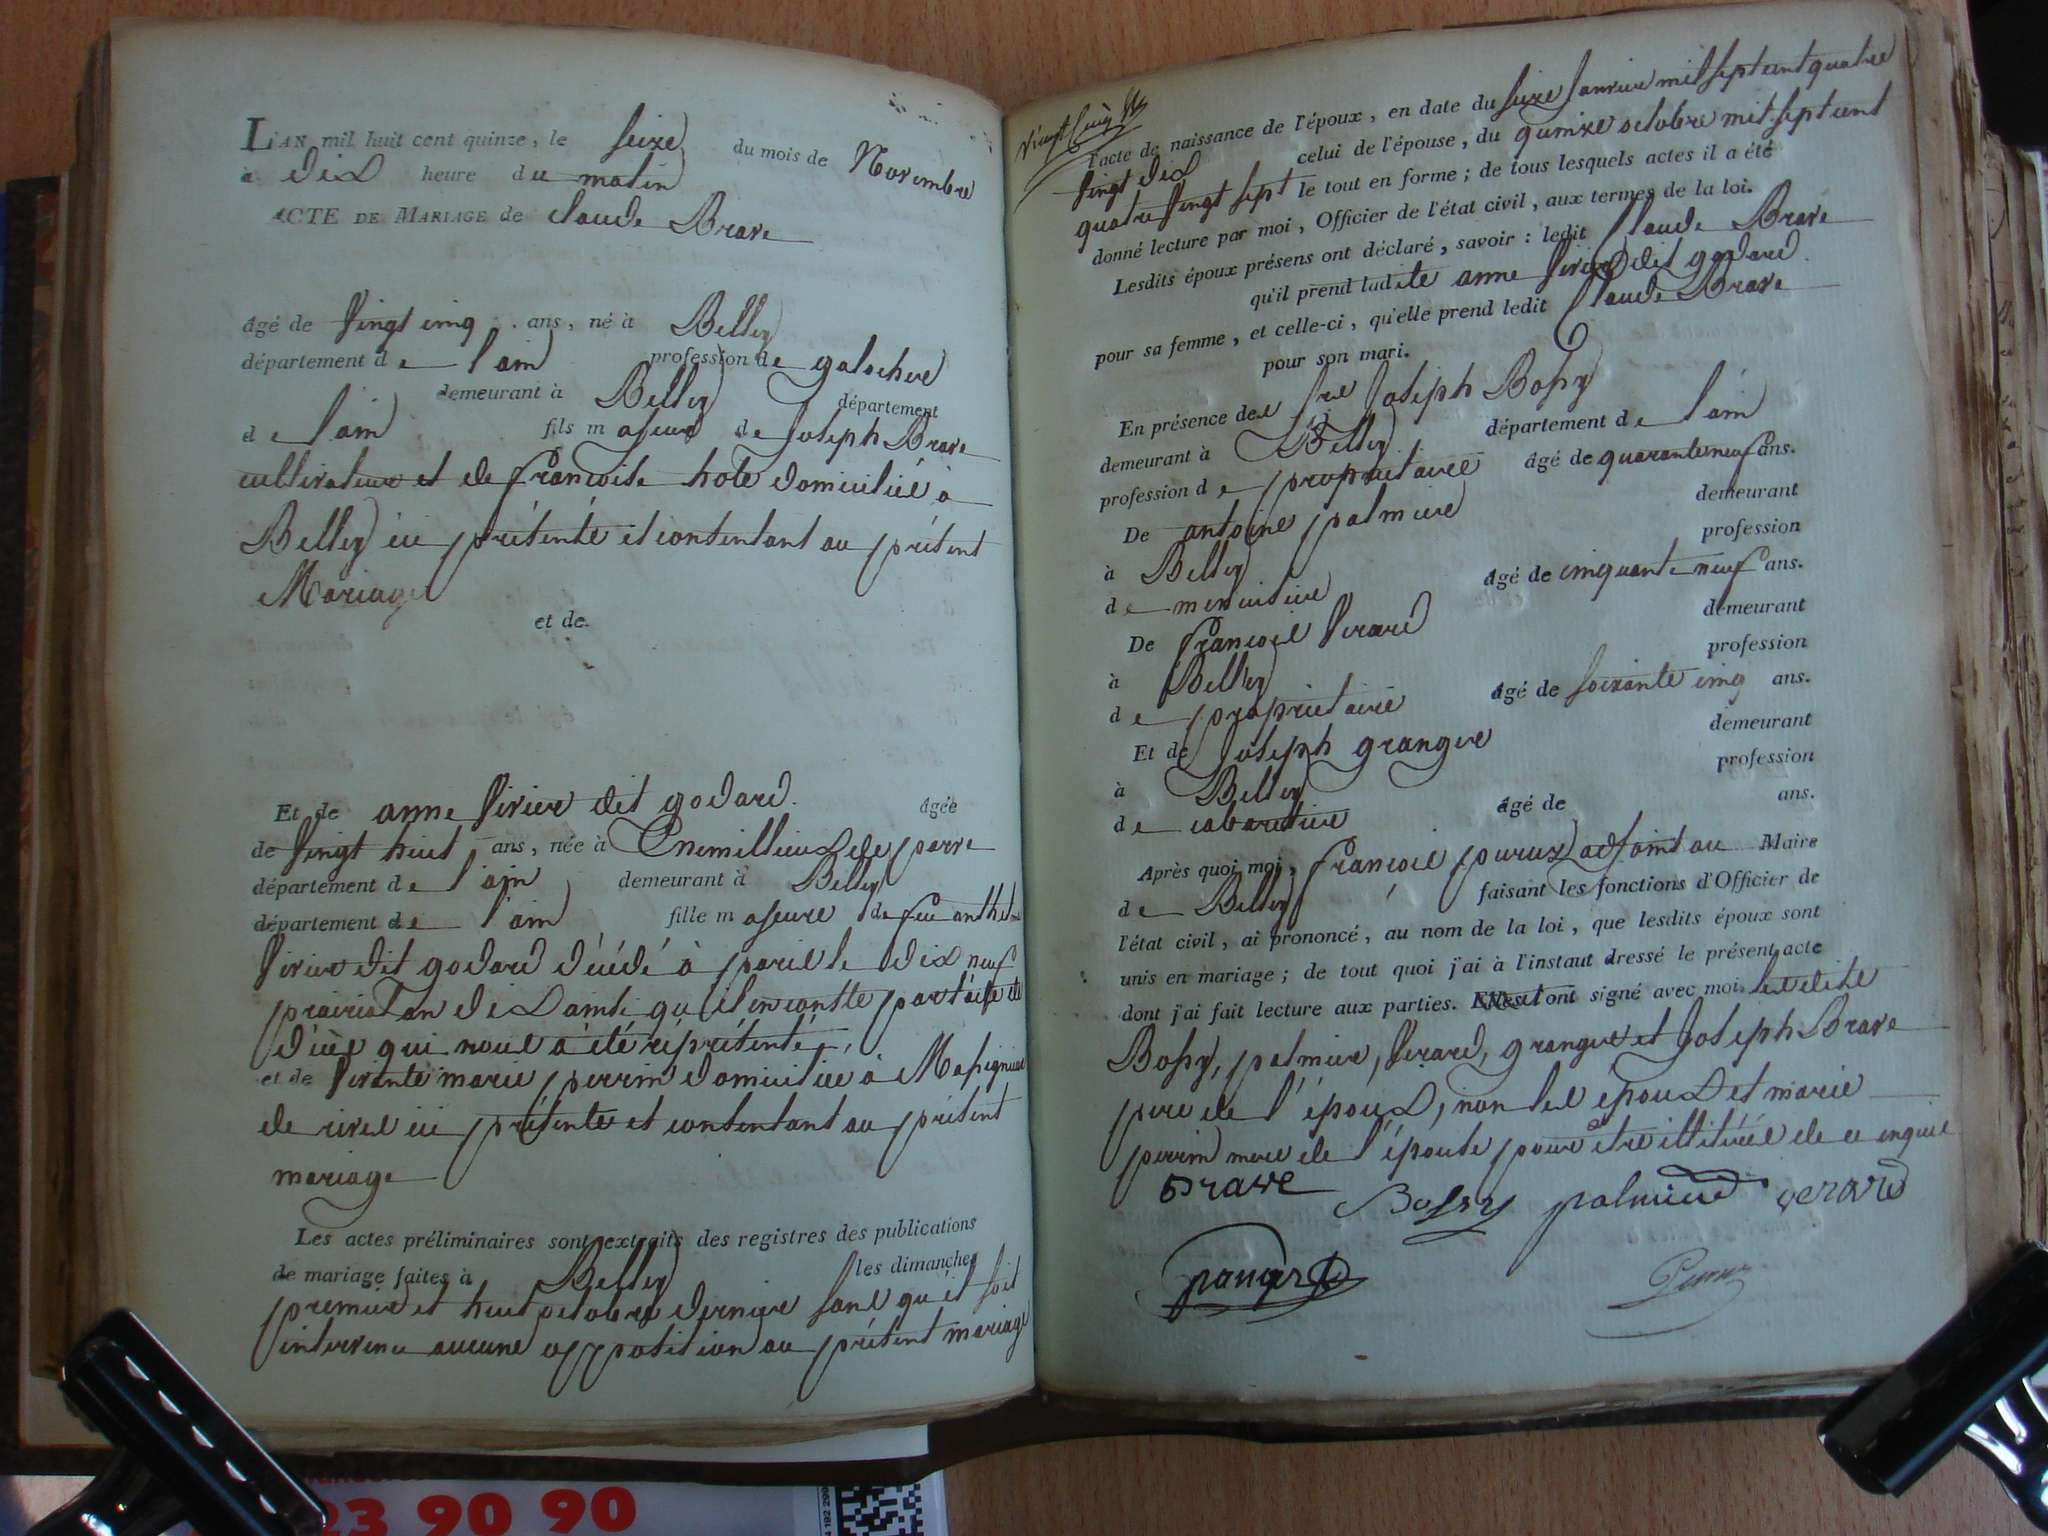 L'AN mil huit cent quinze, le seize du mois de Novembre
à dix heure du matin
ACTE DE MARIAGE de Claude Brave
âgé de vingt cinq ans, né à Belley
département de l'ain profession de galochier
demeurant à Belley département
de l'ain fils majeur de Joseph Brave
cultivateur et de françoise hote domicilié à
Belley ici présente et consentant au présent
Mariage
et de
Et de anne Virier dit godard. âgée
de vingt huit ans, née à
département de l'ain demeurant à Belley
département de l'ain fille majeure de feu anthelme
Virier dit godard décédé à paris le dix neuf
prairial an dix ainsi qu'il en conste par l'acte de
décès qui nous a été réprésenté,
et de marie perrin domiciliée à Massignieu
de rives ici présente et consentant au présent
mariage
Les actes préliminaires sont extraits des registres des publications
de mariage faites à Belley les dimanches
premier et huit octobre dernier sans qu'il soit
intervenu aucune opposition au présent mariage
vingt cinq
l'acte de naissance de l'époux, en date du seize Janvier mil sept cent quatre
vingt dix celui de l'épouse, du quinze octobre mil sept cent
quatre vingt sept le tout en forme; de tous lesquels actes il a été
donné lecture par moi, Officier de l'état civil, aux termes de la loi.
Lesdits époux présens ont déclaré, savoir: ledit Claude Brave
qu'il prend ladite anne Virier dit godard
pour sa femme, et celle-ci, qu'elle prend ledit Claude Brave
pour son mari.
En présence de Joseph Bossy
demeurant à Belley département de l'ain
profession de propriétaire âgé de quarante neuf ans.
De antoine palmier demeurant
à Belley profession
de menuisier âgé de cinquante neuf ans.
De françois Verard demeurant
à Belley profession
de propriétaire âgé de soixante cinq ans.
Et de Joseph granger demeurant
à Belley profession
de cabaretier âgé de ans.
Après quoi moi, françois peroux adjoint au Maire
de Belley faisant les fonctions d'Officier de
l'état civil, ai prononcé, au nom de la loi, que lesdits époux sont
unis en mariage; de tout quoi j'ai à l'instant dressé le présent acte
dont j'ai fait lecture aux parties. signé avec moi lesdits
Bossy, palmier, Verard, granger et Joseph Brave
pere de l'époux, non les époux et marie
perrin mere de l'épouse pour être illitérés de ce enquis
Brave Bossy palmier verard
granger
23 90 90